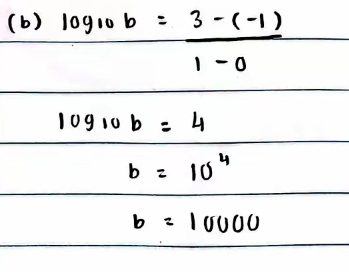 (b) log10 b = 3 - (-1)
1 - 0
log10 b = 4
b = 10⁴
b = 10000